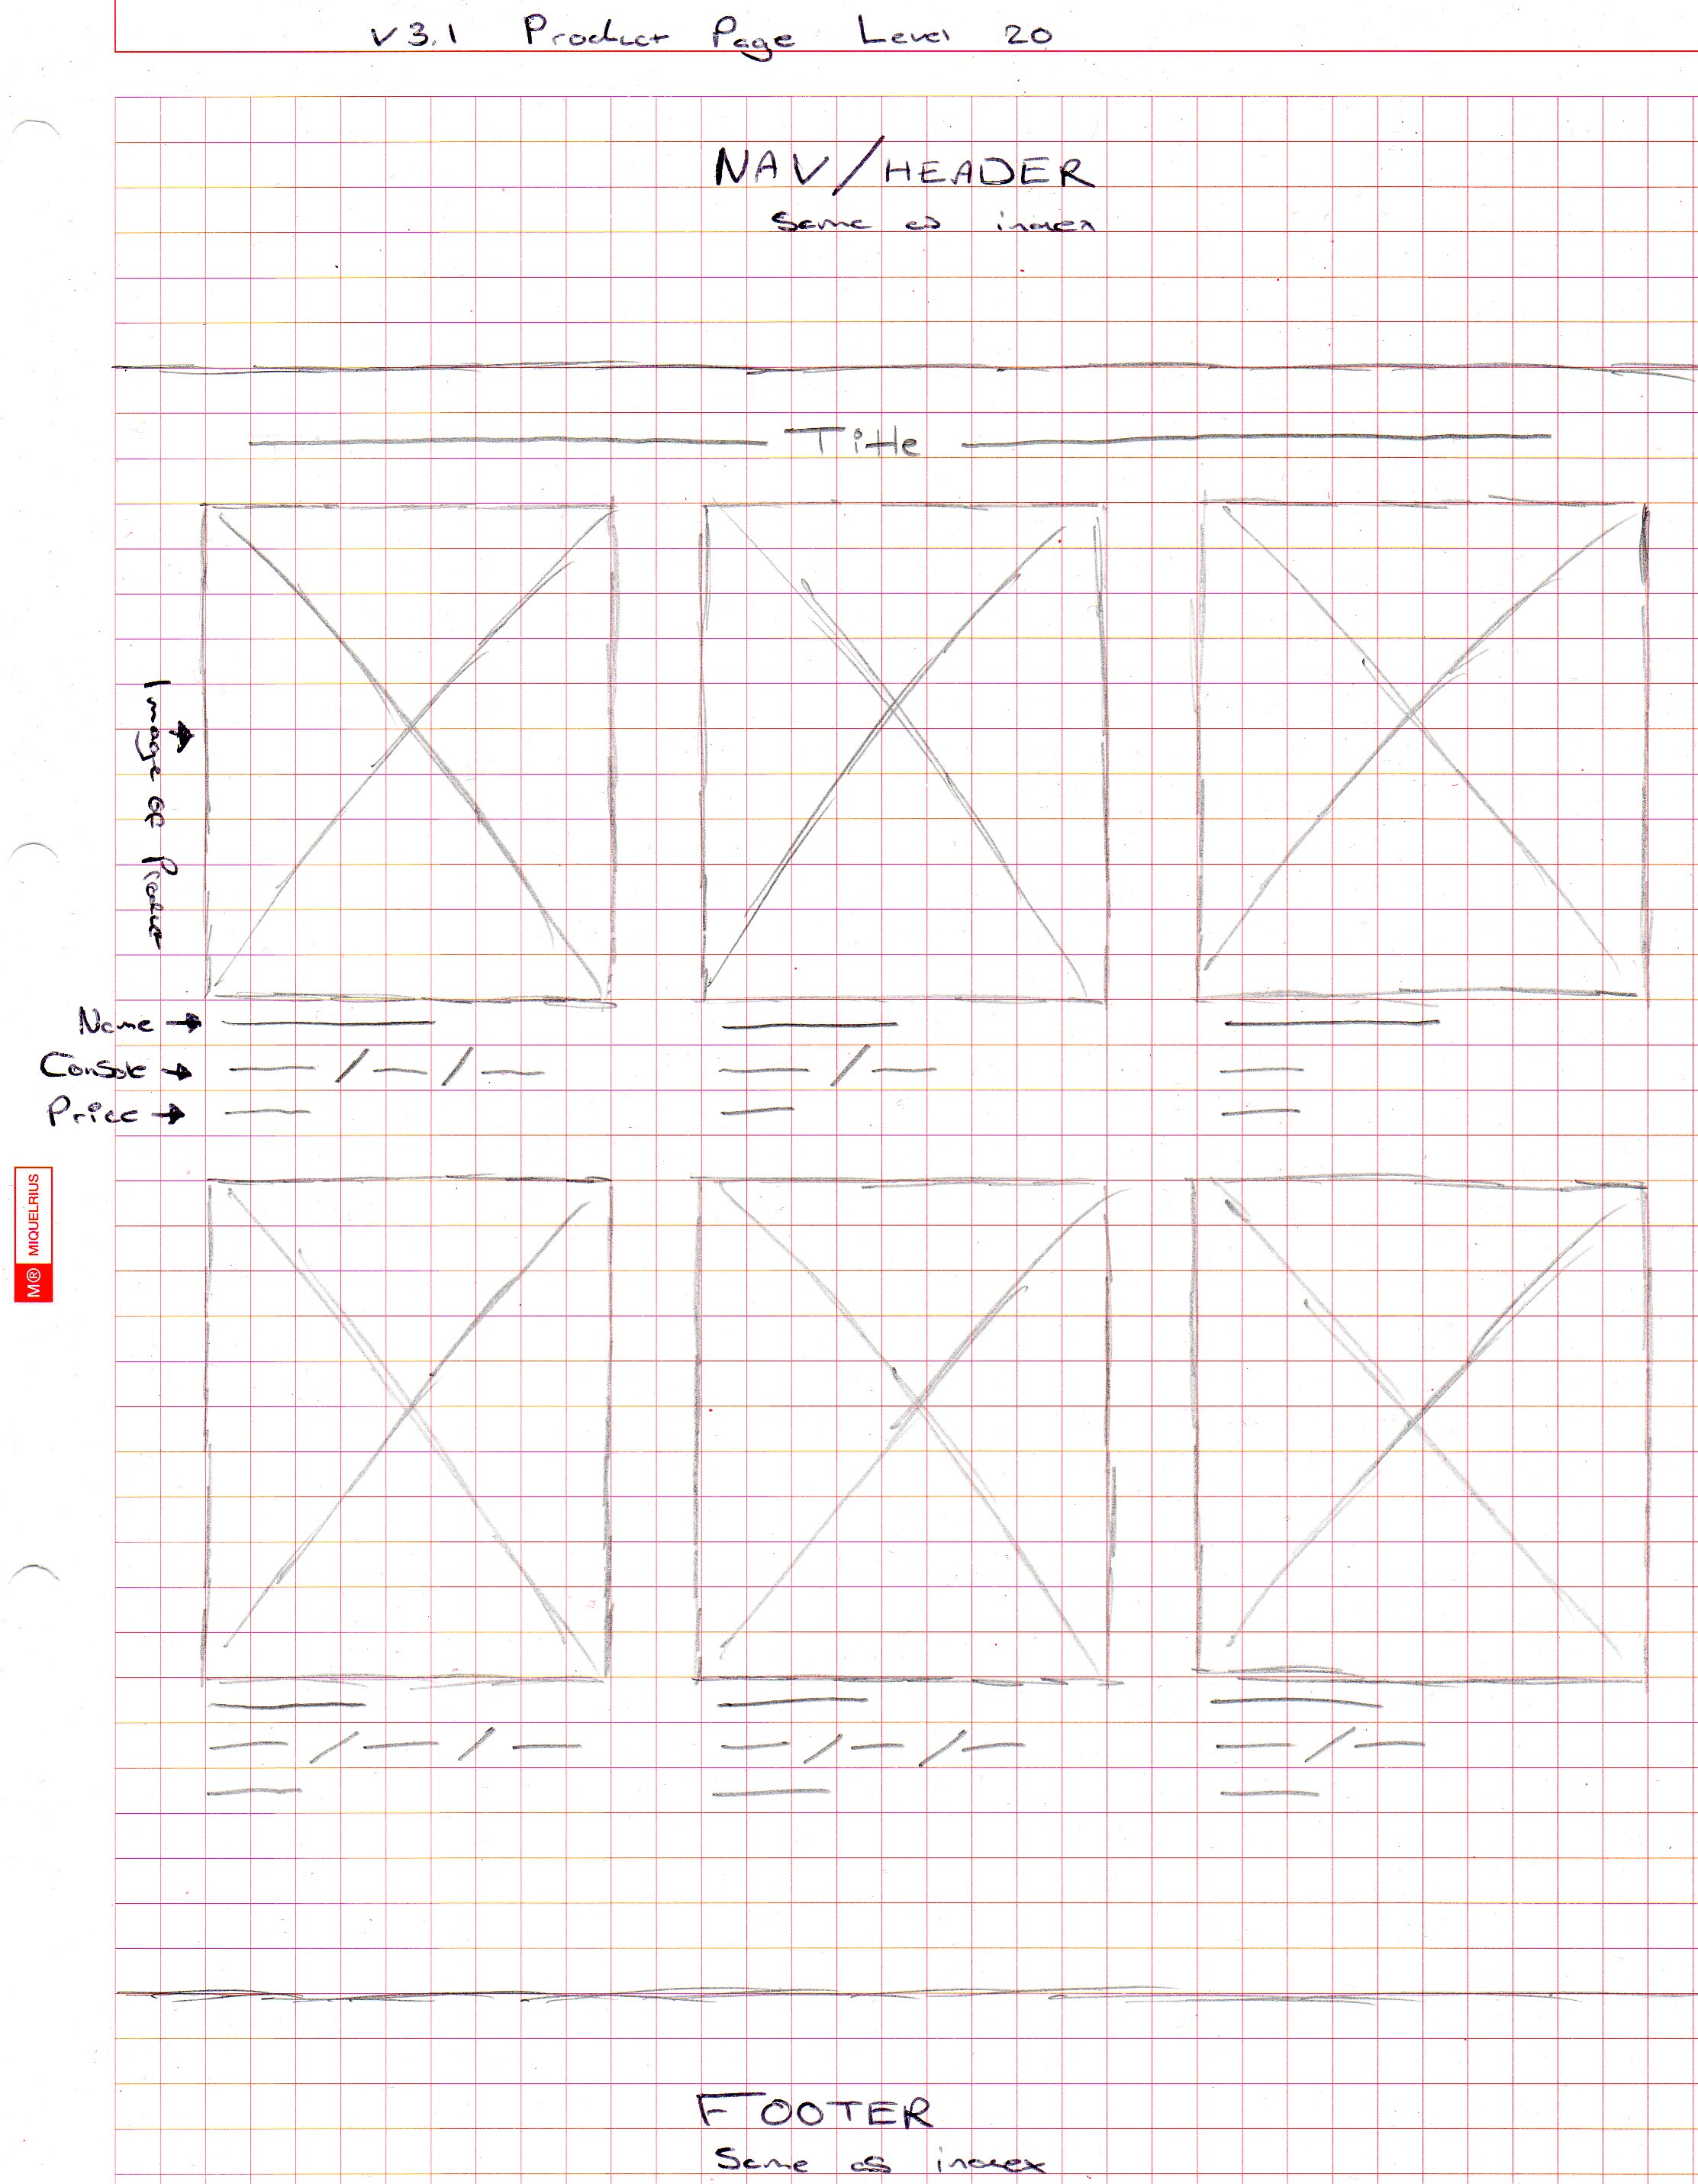 V3.1 Product Page Level 20
NAV/HEADER
Same as index
Title
Image of Product
Name
Console
Price
M® MIQUELRIUS
FOOTER
Same as index